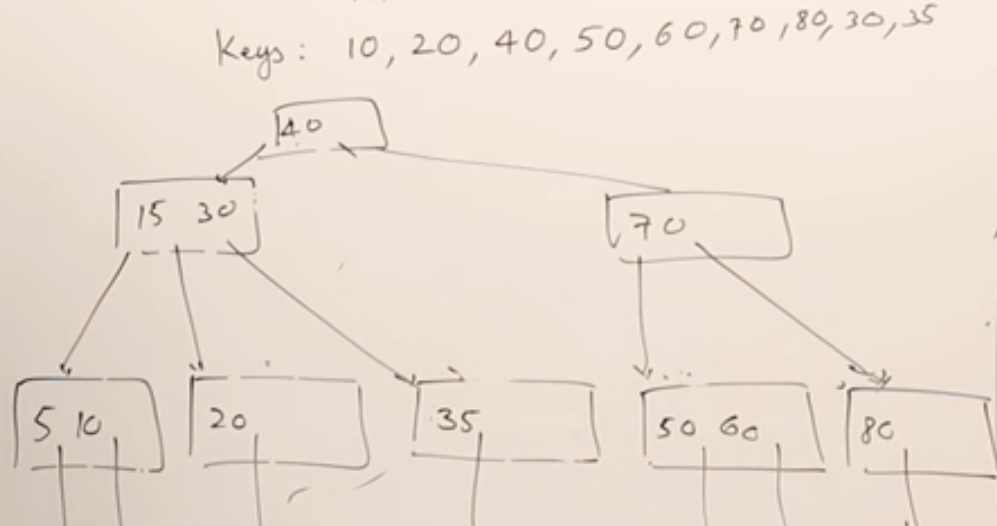 Keys: 10, 20, 40, 50, 60, 70, 80, 30, 35
40
15 30
70
5 10
20
35
50 60
80